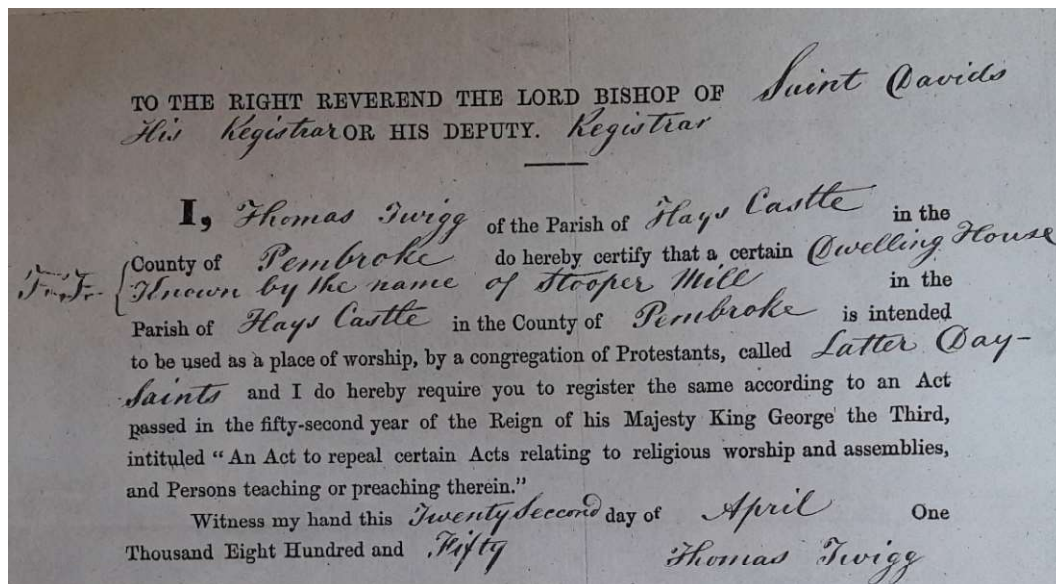 TO THE RIGHT REVEREND THE LORD BISHOP OF Saint Davids
His Registrar OR HIS DEPUTY. Registrar
I, Thomas Twigg of the Parish of Hays Castle in the
County of Pembroke do hereby certify that a certain Dwelling House
Known by the name of Stooper Mill in the
Parish of Hays Castle in the County of Pembroke is intended
to be used as a place of worship, by a congregation of Protestants, called Latter Day-
Saints and I do hereby require you to register the same according to an Act
passed in the fifty-second year of the Reign of his Majesty King George the Third,
intituled “An Act to repeal certain Acts relating to religious worship and assemblies,
and Persons teaching or preaching therein.”
Witness my hand this Twenty Seccond day of April One
Thousand Eight Hundred and Fifty
Thomas Twigg